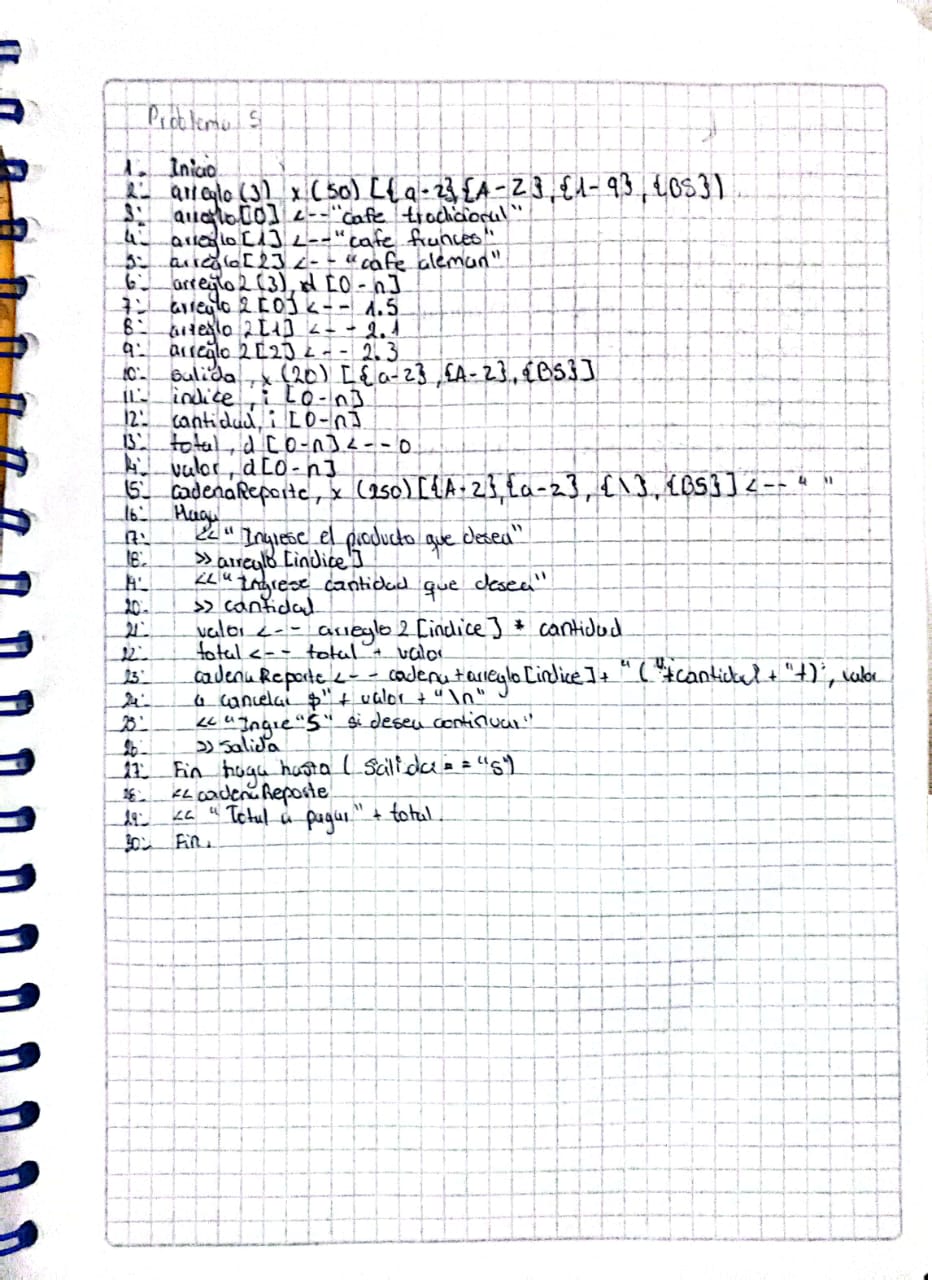 Problema 5
1- Inicio
2- arreglo (3), x (50) [{a-z}{A-Z}, {1-9}, {BS})
3- arreglo [0] <-- "cafe tradicional"
4- arreglo [1] <-- "cafe frances"
5- arreglo [2] <-- "cafe aleman"
6- arreglo 2 (3), d [0-n]
7- arreglo 2 [0] <-- 1.5
8- arreglo 2 [1] <-- 2.1
9- arreglo 2 [2] <-- 2.3
10- salida, x (20) [{a-z}, {A-Z}, {BS}]
11- indice, i [0-n]
12- cantidad, i [0-n]
13- total, d [0-n] <-- 0
14- valor, d [0-n]
15- cadenaReporte, x (250) [{A-Z}, {a-z}, {\}, {BS}] <-- " "
16- Haga
17- << "Ingrese el producto que desea"
18- >> arreglo [indice]
19- << "Ingrese cantidad que desea"
20- >> cantidad
21- valor <-- arreglo 2 [indice] * cantidad
22- total <-- total + valor
23- cadenaReporte <-- cadena + arreglo [indice] + "(" + cantidad + "+)", valor
24- a cancelar $" + valor + "\n"
25- << "Ingre "S" si desea continuar"
26- >> salida
27- Fin haga hasta (Salida == "s")
28- << cadenaReporte
29- << "Total a pagar" + total.
30- Fin.